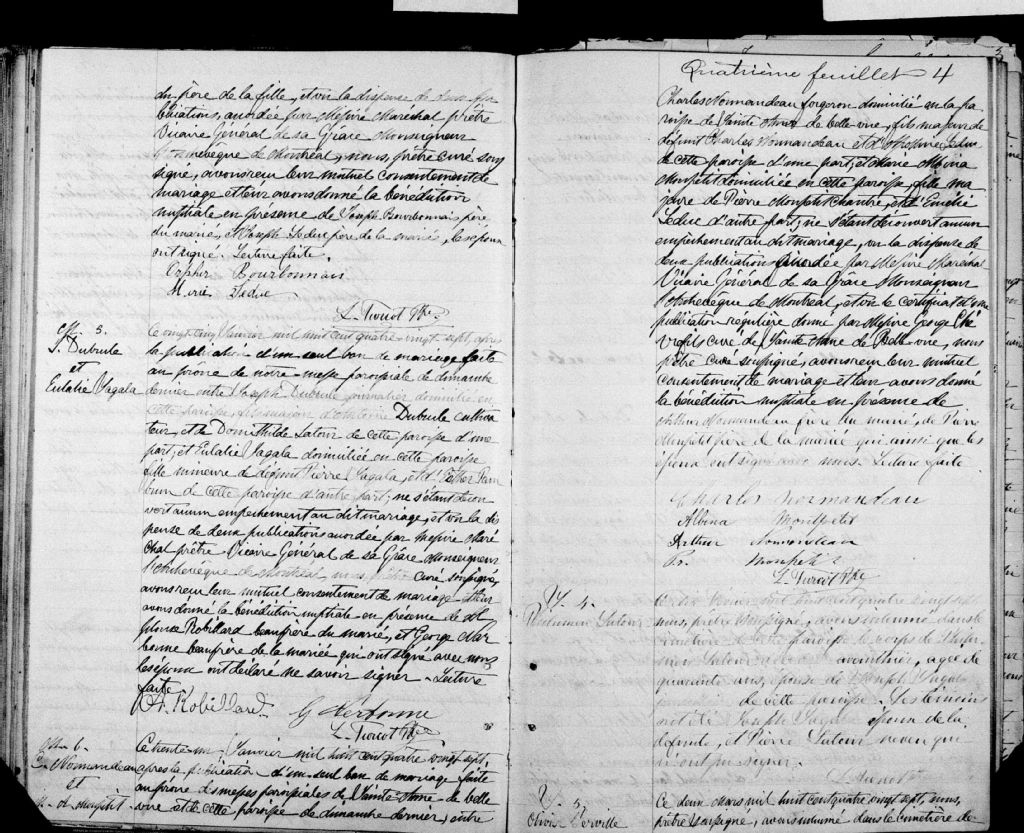 du père de la fille, et vu la dispense de deux pu
blications, accordée par Messire Maréchal prêtre
Vicaire Général de sa Grâce Monseigneur
l'Archevêque de Montréal, nous, prêtre curé sous
signé, avons reçu leur mutuel consentement de
mariage et leur avons donné la bénédiction
nuptiale en présence de Joseph Bourbonnais père
du marié, et Joseph Leduc père de la mariée, les époux
ont signé. Lecture faite.
Orphir Bourbonnais
Leduc
L. Turcot Ptre
M. 5.
J. Dubrule
et
Eulalie Sagala
Le vingt cinq Janvier mil huit cent quatre vingt sept, après
la publication d'un seul ban de mariage faite
au prône de notre messe paroissiale de dimanche
dernier entre Joseph Dubrule journalier domicilié en
cette paroisse, fils majeur d'Antoine Dubrule cultiva
teur, et de Domithilde Latour de cette paroisse d'une
part, et Eulalie Sagala domiciliée en cette paroisse
fille mineure de défunt Pierre Sagala, et d'Esther Ram
de cette paroisse d'autre part; ne s'étant décou
vert aucun empêchement au dit mariage, et vu la dis
pense de deux publications accordée par Messire Maré
chal prêtre Vicaire Général de sa Grâce Monseigneur
l'Archevêque de Montréal, nous prêtre curé soussigné,
avons reçu leur mutuel consentement de mariage et leur
avons donné la bénédiction nuptiale en présence de Al
phonse Robillard beaufrère du marié, et George Nar
bonne beaufrère de la mariée qui ont signé avec nous
les époux ont déclaré ne savoir signer. Lecture
faite.
A. Robillard. G Nerbonne
L. Turcot Ptre
M. 6.
C. Normandeau
et
M. A. Monpetit
Ce trente un Janvier mil huit cent quatre vingt sept,
après la publication d'un seul ban de mariage faite
au prône des messes paroissiales de Sainte Anne de belle
vue et de cette paroisse de dimanche dernier, entre
Quatrième feuillet 4
Charles Normandeau forgeron domicilié en la pa
roisse de Sainte Anne de belle vue, fils majeur de
défunt Charles Normandeau et d'
de cette paroisse d'une part, et Marie Albina
Monpetit domiciliée en cette paroisse, fille ma
jeure de Pierre Monpetit Chantre, et d'Emélie
Leduc d'autre part; ne s'étant découvert aucun
empêchement au dit mariage, vu la dispense de
deux publications accordée par Messire Maréchal
Vicaire Général de sa Grâce Monseigneur
l'Archevêque de Montréal, et vu le certificat d'une
publication régulière donné par Messire George Che
vrefils curé de Sainte Anne de Bellevue, nous
prêtre curé soussigné, avons reçu leur mutuel
consentement de mariage et leur avons donné
la bénédiction nuptiale en présence de
Arthur Normandeau frère du marié, de Pierre
Monpetit père de la mariée qui ainsi que les
époux ont signé avec nous. Lecture faite
Charles Normandeau
Albina Montpetit
Arthur Normandeau
Pr. Monpetit
L. Turcot Ptre
S. 4.
Latour
mil huit cent quatre vingt sept
nous, prêtre soussigné, avons inhumé dans le
cimetière de cette paroisse le corps de
Latour avant hier, agée de
quarante ans, épouse de Joseph Sagala
de cette paroisse. Les témoins
ont été Joseph Sagala époux de la
défunte, et Pierre Latour neveu qui
n'ont pu signer.
L. Turcot Ptre
S. 5.
Derville
Ce deux Mars mil huit cent quatre vingt sept, nous,
prêtre soussigné, avons inhumé dans le cimetière de